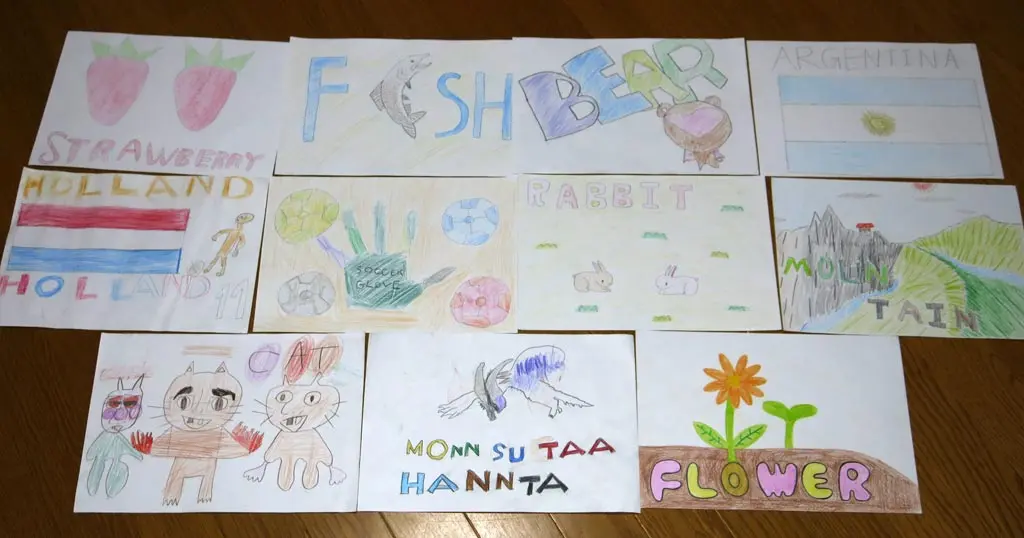 STRAWBERRY
FISH
BEAR
ARGENTINA
HOLLAND
HOLLAND 11
SOCCER
GLOVE
RABBIT
MOUN
TAIN
CAT
MONN SU TAA
HANNTA
FLOWER